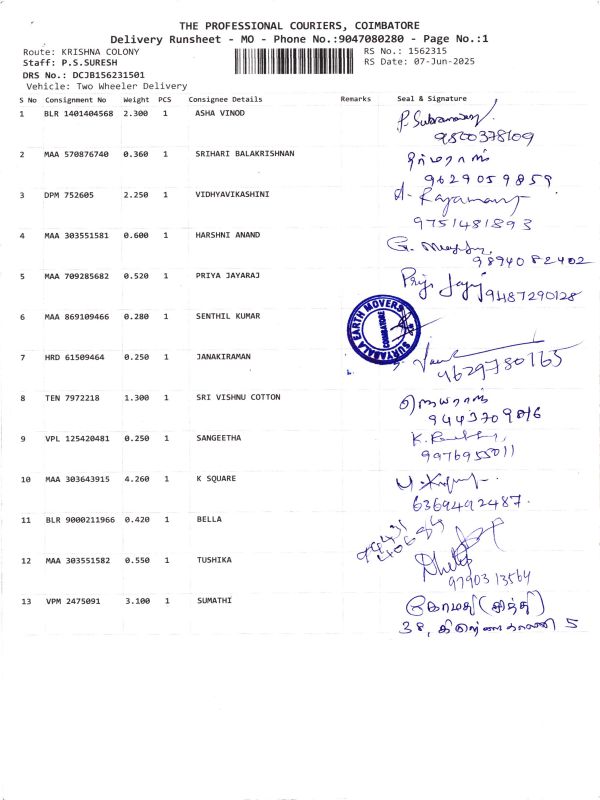 THE PROFESSIONAL COURIERS, COIMBATORE
Delivery Runsheet - MO - Phone No.:9047080280 - Page No.:1
Route: KRISHNA COLONY RS No.: 1562315
Staff: P.S.SURESH RS Date: 07-Jun-2025
DRS No.: DCJB156231501
Vehicle: Two Wheeler Delivery
S No Consignment No Weight PCS Consignee Details Remarks Seal & Signature
1 BLR 1401404568 2.300 1 ASHA VINOD
2 MAA 570876740 0.360 1 SRIHARI BALAKRISHNAN
9629059859
3 DPM 752605 2.250 1 VIDHYAVIKASHINI
9751481893
4 MAA 303551581 0.600 1 HARSHNI ANAND
9894082402
5 MAA 709285682 0.520 1 PRIYA JAYARAJ
9487290128
6 MAA 869109466 0.280 1 SENTHIL KUMAR
SURYABALA EARTH MOVERS
COIMBATORE
7 HRD 61509464 0.250 1 JANAKIRAMAN
9629780165
8 TEN 7972218 1.300 1 SRI VISHNU COTTON
9443709816
9 VPL 125420481 0.250 1 SANGEETHA
9976955011
10 MAA 303643915 4.260 1 K SQUARE
6369492487.
11 BLR 9000211966 0.420 1 BELLA
12 MAA 303551582 0.550 1 TUSHIKA
9790313564
13 VPM 2475091 3.100 1 SUMATHI
கோமதி (சித்தி)